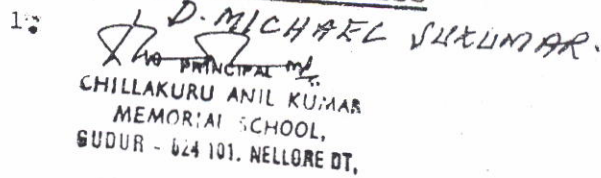 1. D. MICHAEL SUKUMAR.
PRINCIPAL
CHILLAKURU ANIL KUMAR
MEMORIAL SCHOOL,
GUDUR - 524 101. NELLORE DT,